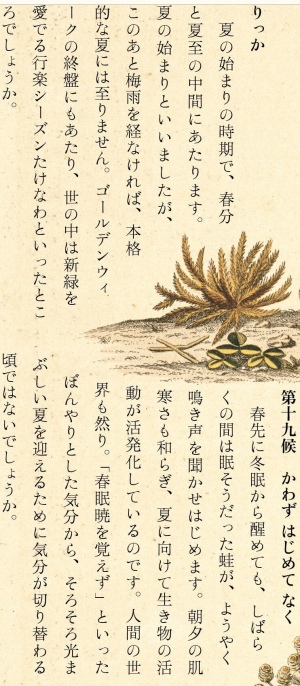 りっか
夏の始まりの時期で、春分
と夏至の中間にあたります。
夏の始まりといいましたが、
このあと梅雨を経なければ、本格
的な夏には至りません。ゴールデンウィ
ークの終盤にもあたり、世の中は新緑を
愛でる行楽シーズンたけなわといったとこ
ろでしょうか。
第十九候　かわず はじめて なく
春先に冬眠から醒めても、しばら
くの間は眠そうだった蛙が、ようやく
鳴き声を聞かせはじめます。朝夕の肌
寒さも和らぎ、夏に向けて生き物の活
動が活発化しているのです。人間の世
界も然り。「春眠暁を覚えず」といった
ぼんやりとした気分から、そろそろ光ま
ぶしい夏を迎えるために気分が切り替わる
頃ではないでしょうか。